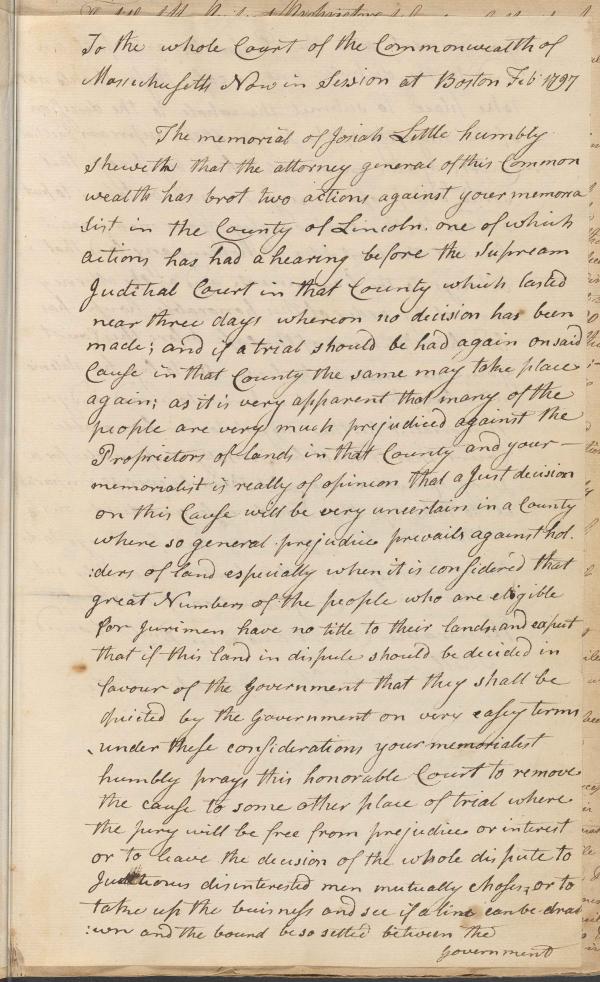 To the whole Court of the Commonwealth of
Massachusetts Now in Session at Boston Feb 1797
The memorial of Josiah Little humbly
sheweth that the attorney general of this Common
wealth has brot two actions against your memora
list in the County of Lincoln. one of which
actions has had a hearing before the Supream
Juditial Court in that County which lasted
near three days whereon no decision has been
made; and if a trial should be had again on said
Cause in that County the same may take place
again; as it is very apparent that many of the
people are very much prejudiced against the
Proprietors of lands in that County and your—
memorialist is really of opinion that a Just decision
on this Cause will be very uncertain in a County
where so general prejudice prevails against hol.
:ders of land especially when it is considered that
great Numbers of the people who are eligible
for Jurimen have no title to their lands and expect
that if this land in dispute should be decided in
favour of the Government that they shall be
quieted by the Government on very easey terms
under these considerations your memorialist
humbly prays this honorable Court to remove
the cause to some other place of trial where
the jury will be free from prejudice or interest
or to leave the decision of the whole dispute to
disinterested men mutually chosen, or to
take up the buisness and see if a line can be dra
:wn and the bound be so setled between the
Government